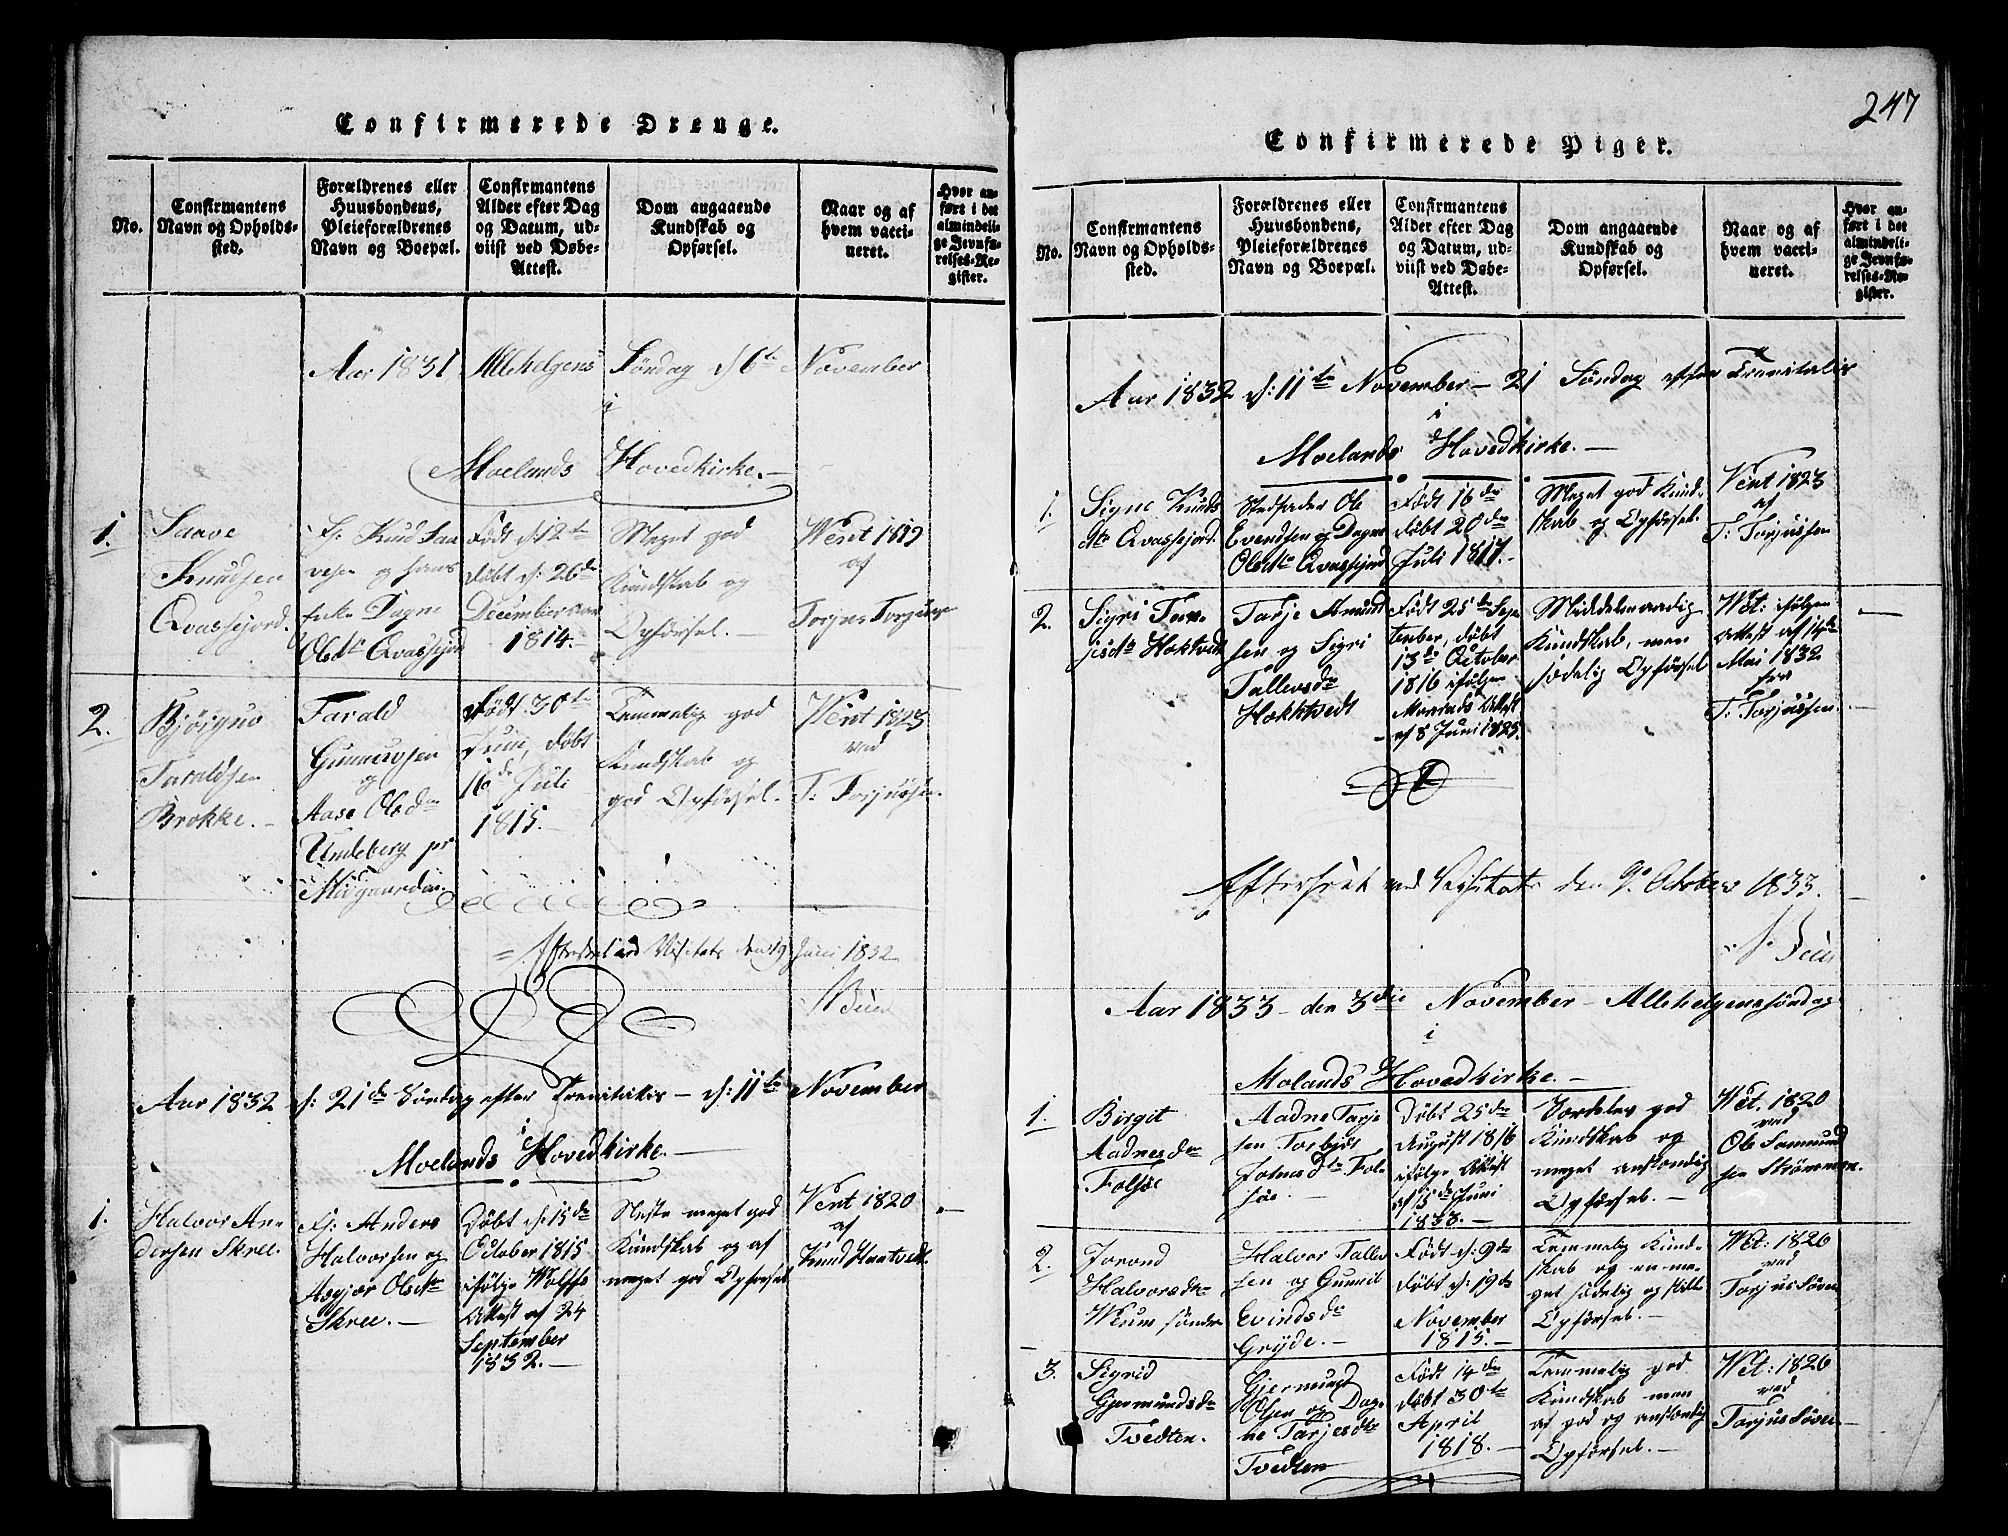 Confirmerede Drenge.
No.
Confirmantens
Navn og Opholds-
sted.
Forældrenes eller
Huusbondens,
Pleieforældrenes
Navn og Boepæl.
Confirmantens
Alder efter Dag
og Datum, ud-
viist ved Døbe-
Attest.
Dom angaaende
Kundskab og
Opførsel.
Naar og af
hvem vacci-
neret.
Hvor an-
ført i det
almindeli-
ge Jevnfø-
relses-Re-
gister.
Aar 1831 Allehelgens Søndag d: 6te November
i
Moelands Hovedkirke.
1.
Saave
Knudsen
Qvassejord.
F: Knud Saa
vesen og hans
Enke Dagne
Olsdtr Qvassejord
Født d: 12te
døbt d: 26de
December
1814.
Meget god
Kundskab og
Opførsel.
Vent 1819
af
Torjus Torjussen
2.
Bjørguv
Taraldsen
Brokke.
Tarald
Gunnuvsen
og
Aase Olsdtr
Undeberg pr
Født 30te
Juni, døbt
16de Juli
1815.
Temmelig god
Kundskab og
god Opførsel.
Vent 1823
ved
T: Torjussen.
Efterseet ved Visitats den 19 Juni 1832
Aar 1832 d: 21de Søndag efter Trenitatis d: 11te November
i
Moelands Hovedkirke.
1.
Halvor An-
dersen Skree.
F: Anders
Halvorsen og
Asgjær Olsdtr
Skree.
Døbt d: 15de
October 1815
ifølge Wolffs
Attest af 24
September
1832.
Neste meget god
Kundskab og af
meget god Opførsel
Vent 1820
af
Knud Haatvedt.
247
Confirmerede Piger.
No.
Confirmantens
Navn og Opholds-
sted.
Forældrenes eller
Huusbondens,
Pleieforældrenes
Navn og Boepæl.
Confirmantens
Alder efter Dag
og Datum, ud-
viist ved Døbe-
Attest.
Dom angaaende
Kundskab og
Opførsel.
Naar og af
hvem vacci-
neret.
Hvor an-
ført i det
almindeli-
ge Jevnfø-
relses-Re-
gister.
Aar 1832 d: 11te November 21 Søndag efter Trenitatis
i
Moelands Hovedkirke.
1.
Signe Knuds
dtr Qvassejord.
Stedfader Ole
Evendsen og Dagne
Olsdtr Qvassejord
Født 16de
døbt 20de
Juli 1817.
Meget god Kund-
skab og Opførsel.
Vent 1823
af
T: Torjussen
2.
Sigri Tar-
jesdtr Høktvedt
Tarje Amund
sen og Sigri
Tallevsdtr
Høkktvedt
Født 25de Sep
tember, døbt
13de October
1816 ifølge
Attest
af 8 Juni 1825.
Middelmaadig
Kundskab, men
sædelig Opførsel
Vet: ifølge
Attest af 14de
Mai 1832
fra
T: Torjussen.
Efterseet ved Visitats den 9. October 1833.
Aar 1833 den 3die November Allehelgenssøndag
i
Molands Hovedkirke.
1.
Birgit
Aadnesdtr
Folsøe
Aadne Tarje
sen Torbjør
Jolnesdtr Fol
søe.
Døbt 25de
August 1816
ifølge Attest
af 5de Juni
1833.
Særdeles god
Kundskab og
meget anstændig
Opførsel.
Vet. 1820
ved
Ole Samund
sen Strømmen.
2.
Jorond
Halvorsdtr
Halvor Tallev
sen og Gunnil
Evindsdtr
Grýde.
Født d: 9de
døbt d: 19de
November
1815.
Temmelig Kund-
skab og en me-
get sædelig og stille
Opførsel.
Vet: 1826
ved
Torjus
3.
Sigrid
Gjermundsdtr
Tvedten.
Gjermund
Olsen og Dag-
ne Tarjesdtr
Tvedten
Født 14de
døbt 30te
April
1818.
Temmelig god
Kundskab men
af god og anstændig
Opførsel.
Vet: 1826
ved
Torjus